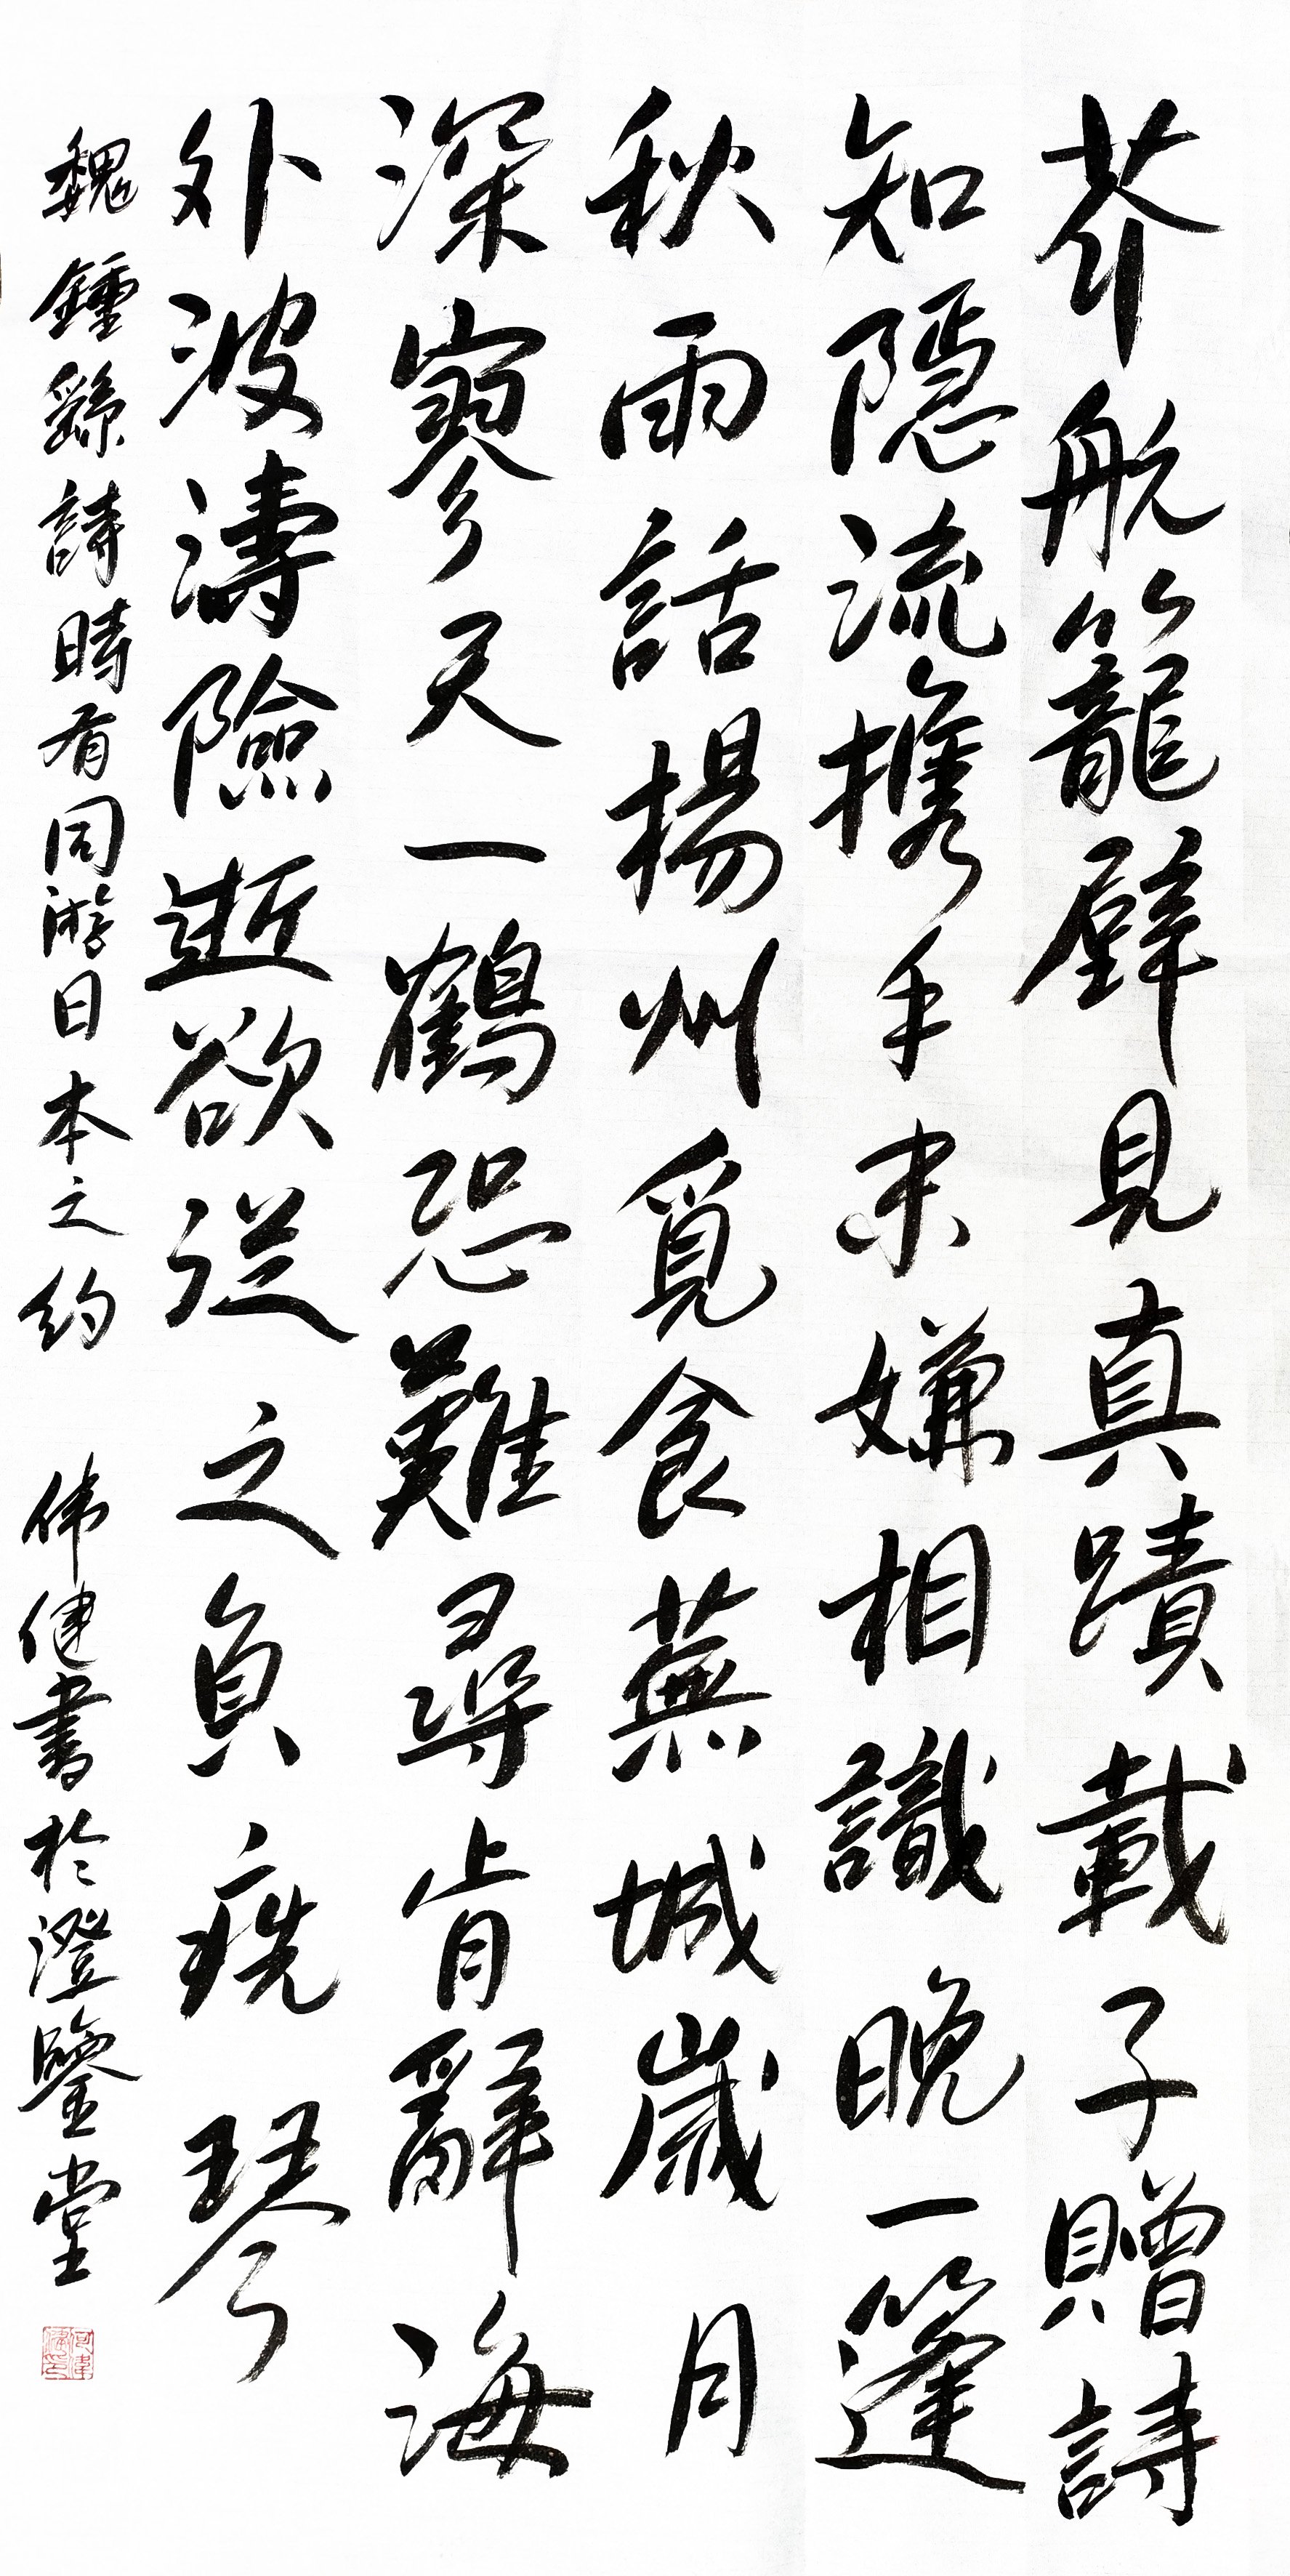 芥航籠壁見真蹟載子贈詩
知隱流携手未嫌相識晚一篷
秋雨話楊州覓食蕪城歲月
深寥天一鶴恐難尋肯辭海
外波濤險逝欲從之負琴
魏鍾繇詩時有同游日本之約 伟健書於澄鑒堂